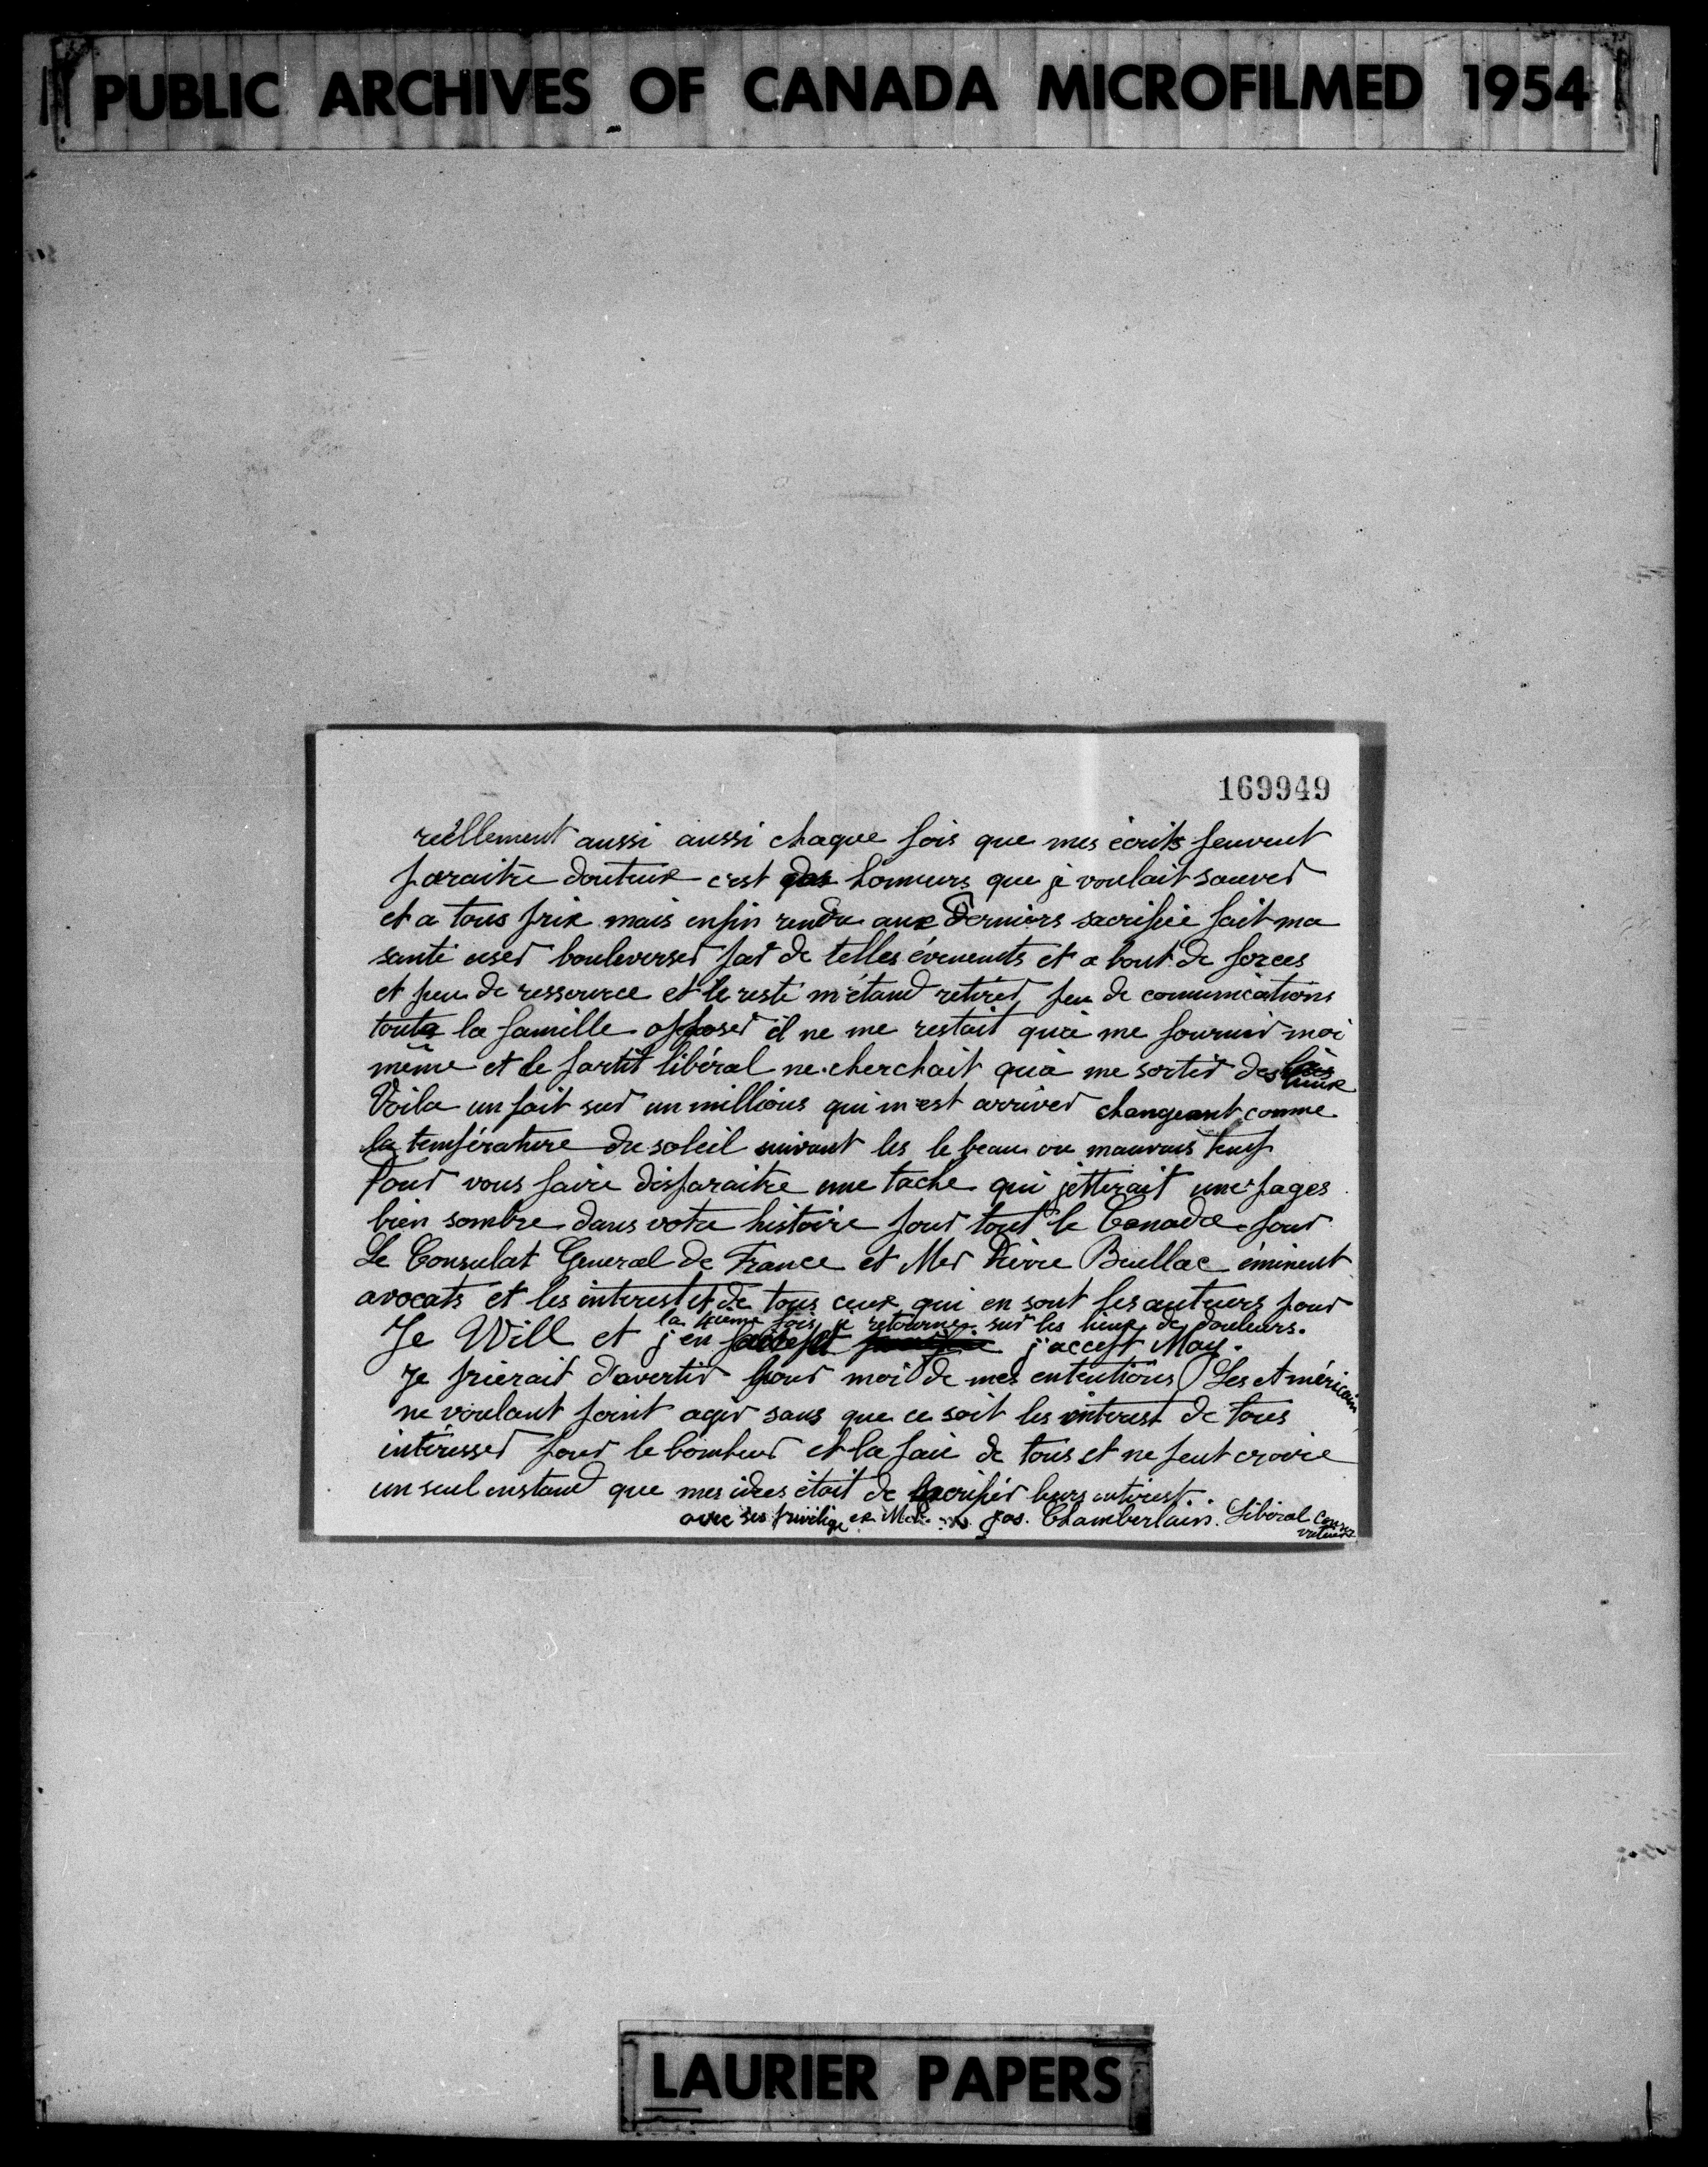 PUBLIC ARCHIVES OF CANADA MICROFILMED 1954
169949
reéllement aussi aussi chaque fois que mes écrits peuvent
paraitre douteux c'est honneurs que je voulait sauver
et a tous prix mais enfin rendu aux Derniers sacrifice fait ma
santé user bouleverser par de telles évenements et a bout de forces
et peu de ressource et le reste m'étand retirer peu de comunications
toute la famille opposer il ne me restait qu'à me fournir moi
même et le partit libéral ne cherchait qu'à me sortir des lieux
Voila un fait sur un millions qui m'est arriver changeant comme
la température du soleil suivant les le beau ou mauvais temp
Pour vous faire disparaitre une tache qui jetterait une pages
bien sombre dans votre histoire pour tout le Canada pour
Le Consulat General de France et Mer Pierre Beullac éminent
avocats et les interest et de tous ceux qui en sont les auteurs pour
la 4ième fois je retourne sur les lieux de douleurs.
Je Will et j'en j'accept May.
Je prierait d'avertir pour moi de mes ententions Les Américain
ne voulant point agir sans que ce soit les interest de tous
intéresser pour le bonheur et la paie de tous et ne peut croire
un seul enstand que mes idées était de sacrifier leurs interest.
avec ses privilige Jos. Chamberlain. Libéral Conservateur
LAURIER PAPERS